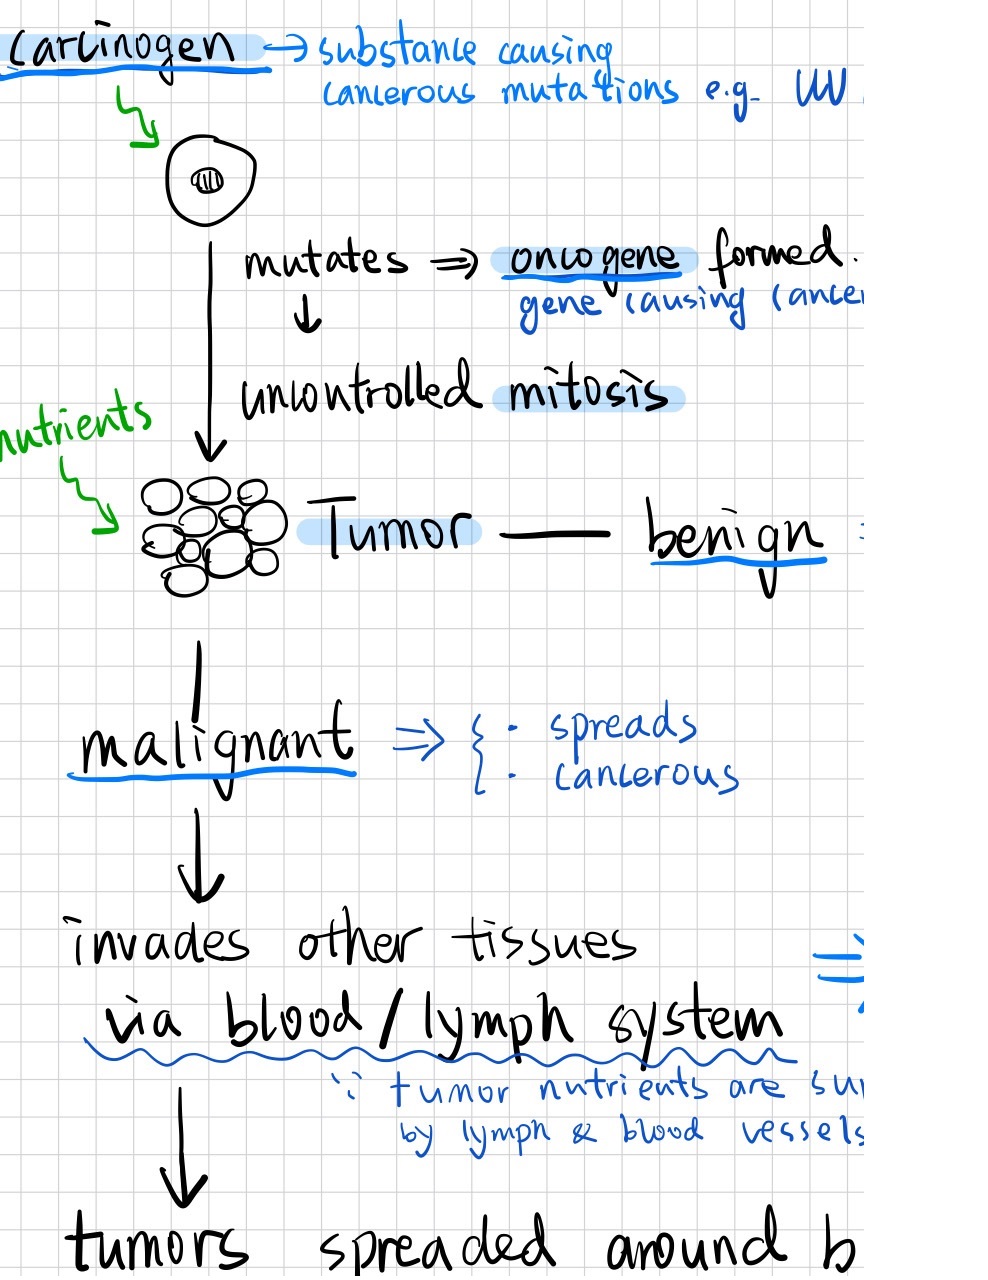 carcinogen → substance causing
cancerous mutations e.g. UV
mutates ⇒ oncogene formed.
↓ gene causing cancer
uncontrolled mitosis
nutrients
Tumor — benign
malignant ⇒ { · spreads
· cancerous
invades other tissues
via blood / lymph system
∵ tumor nutrients are
by lymph & blood vessels
tumors spreaded around